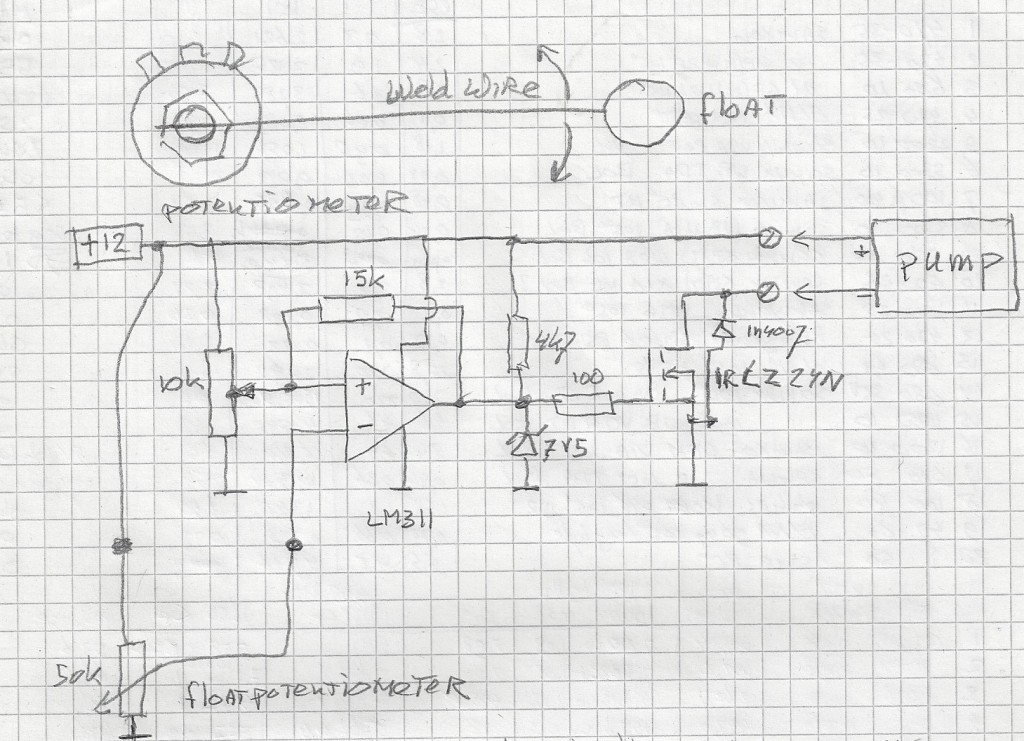 Weld Wire
float
potentiometer
+12
pump
+
-
15k
4k7
1n4007
10k
+
-
100
IRLZ24N
7V5
LM311
50k
float potentiometer